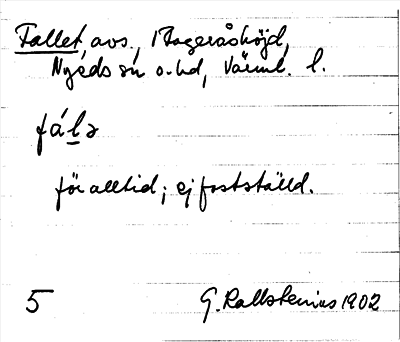 Fallet, avs., i Bogeråshöjd,
Nyeds sn o. hd, Värml. l.
fál̲ə
för alltid; ej fastställd.
5 G. Kallstenius 1902